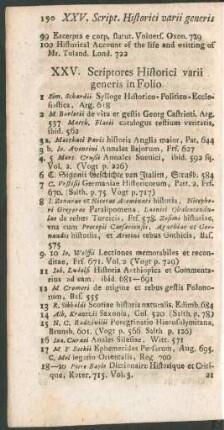 190 XXV. Script. Historici varii generis
99 Excerpta e corp. statut. Univers. Oxon. 729
100 Historical Account of the life and writting of
Mr. Toland. Lond. 722
XXV. Scriptores Historici varii
generis in Folio
1 Sim. Schardii Sylloge Historico-Politico-Eccle-
siastica, Arg. 618
2 M Barletii de vita et gestis Georg Castrioti. Arg.
537 Matth. Flacii catalogus testium veritatis,
ibid. 562
3a. Matthæi Paris historia Anglia maior, Par, 644
3 b. Io. Aventini Annales Boiorum, Frf. 627
4. 5 Mart. Crusii Annales Suevici, ibid. 592 sq.
Vol. 2. (Vogt p. 206)
6 C. Gigonii Geschichte von Italien, Strasb. 584
7 C. Vrstisii Germaniae Historicorum, Part. 2. Frf.
670. Saith. p. 75 Vogt p. 717)
8 I Zonarae et Nicetae Acominati historia, Nicepho-
ri Gregorae Paralipomena. Laonici Chalcocondy-
las de rebus Turcicis, Frf. 578 Zosimi historia
una cum Procopii Caesariensis, Agathiae et Ior-
nandis historiis, et Aretini rebus Gothicis, Bas.
575
9. 10 Io. Wolfii Lectiones memorabiles et recon-
ditae, Frf. 671. Vol. 2 (Vogt p. 720)
11 Iob. Ludolfi Historia Aethiopica et Commenta-
rius ad eam. ibid. 681-691
12 M Cromeri de origine et rebus gestis Polono-
rum, Bas. 555
13 R. Sibbaldi Scotiae historia naturalis, Edimb. 684
14 Alb. Krantzii Saxonia, Col. 520 (Saith p. 78)
15 N. C. Radzivilii Peregrinatio Hierosolymitana,
Brunsb. 601. (Vogt p. 566 Saith. p. 126)
16 Ioa. Curaei Anales Silesiae. Witt. 571
17 M F Beckii Ephemerides Persarum, Aug. 695.
C. Mel legatio Orientalis, Reg 700
18-20 Piere Bayle Dictionaire Historique et Criti-
que, Roter. 715. Vol. 3. 21